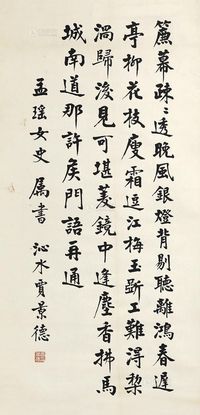 簾幕疎〻透晚風銀燈背剔聽離鴻春遲
亭柳花枝瘦霜逗江梅玉斲工難得棃
渦歸後見可堪菱鏡中逢塵香拂馬
城南道那許矦門語再通
孟瑶女史 属書 沁水賈景德